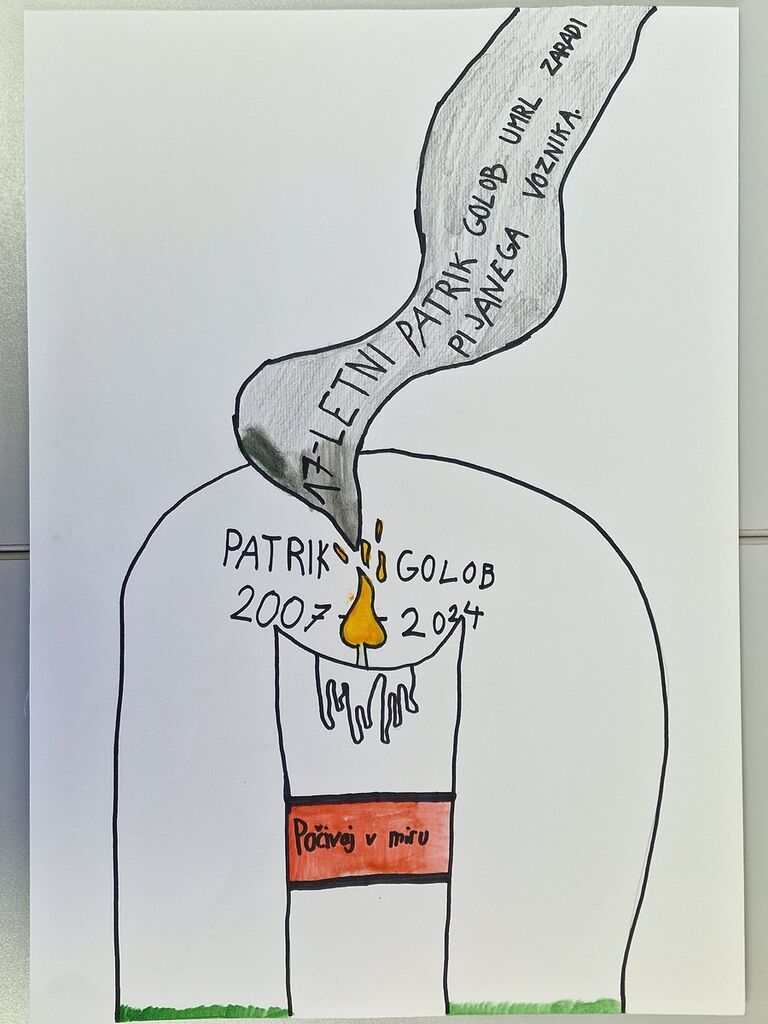 17-LETNI PATRIK GOLOB UMRL ZARADI
PIJANEGA VOZNIKA.
PATRIK GOLOB
2007 - 2024
Počivaj v miru